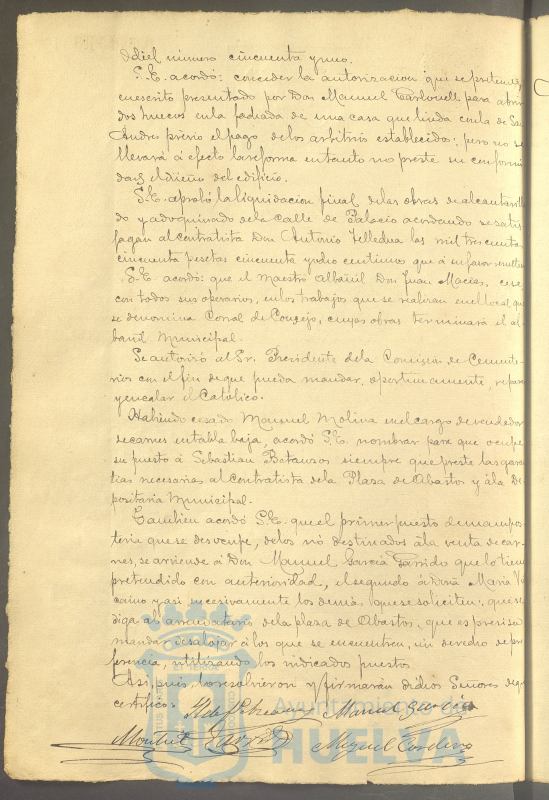 del número cincuenta y uno.
S. E. acordó: conceder la autorizacion que se pretende,
en escrito presentado por Don Manuel para abrir
dos huecos en la fachada de una casa que linda con la de San
Andres previo el pago de los arbitrios establecido; pero no se
llevará á efecto la reforma en tanto no preste su conformi
dad el dueño del edificio.
S. E. aprobó la liquidacion final de las obras de alcantarilla
do y adoquinado de la calle de Palacio acordando se satis
fagan al contratista Don Antonio las mil trescientas
cincuenta pesetas cincuenta y ocho centimos que á su favor resultan
S. E. acordó: que el maestro albañil Don Juan Macias, cese
con todos sus operarios, en los trabajos que se realizan en el local que
se denomina Corral de Concejo, cuyas obras terminará el al
bañil Municipal.
Se autorizó al Sr. Presidente de la Comision de Cemente
rios con el fin de que pueda mandar, oportunamente, reparar
y encalar el Católico.
Habiendo cesado Manuel Molina en el cargo de vendedor
de carnes en tabla baja, acordó S. E. nombrar para que ocupe
su puesto á Sebastian siempre que preste las garan
tias necesarias al contratista de la Plaza de Abastos y á la De
positaria Municipal.
Tambien acordó S. E. que el primer puesto de mampos
teria que se desocupe, de los nó destinados á la venta de car
nes, se arriende á Don Manuel García Garrido que lo tiene
pretendido con anterioridad, el segundo á Doña María
y asi sucesivamente los demás que se soliciten; que se
diga al arrendatario de la plaza de Abastos, que es precisa
mandar desalojar á los que se encuentren, sin derecho de pre
ferencia, utilizando los indicados puestos
Asi, pues, lo resolvieron y firmarán dichos Señores de que
certifico.
Manuel García
Garrido Miguel Cordero
Ayuntamiento de
HUELVA